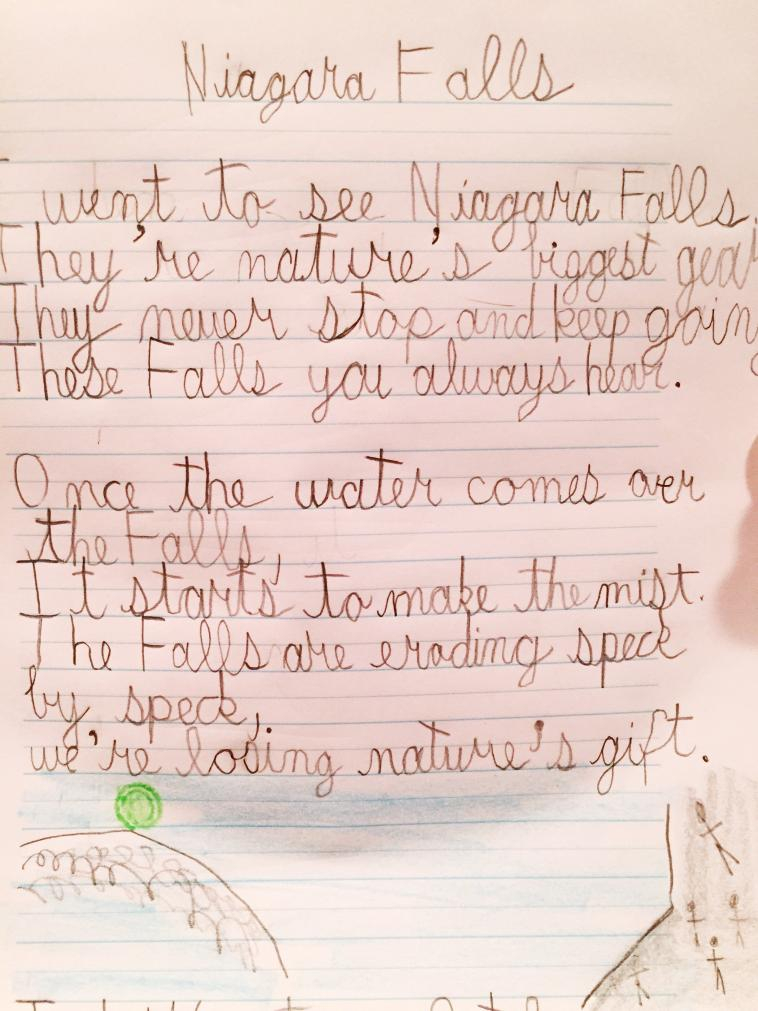 Niagara Falls
I went to see Niagara Falls.
They're nature's biggest gear
They never stop and keep going
These Falls you always hear.
Once the water comes over
the Falls,
It starts to make the mist.
The Falls are eroding speck
by speck,
we're losing nature's gift.